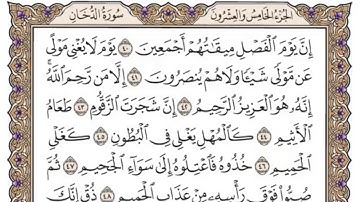 الجزء الخامس والعشرون سورة الدخان
إِنَّ يَوْمَ ٱلْفَصْلِ مِيقَٰتُهُمْ أَجْمَعِينَ ٤٠ يَوْمَ لَا يُغْنِى مَوْلًى
عَن مَّوْلًى شَيْـًٔا وَلَا هُمْ يُنصَرُونَ ٤١ إِلَّا مَن رَّحِمَ ٱللَّهُ ۚ
إِنَّهُۥ هُوَ ٱلْعَزِيزُ ٱلرَّحِيمُ ٤٢ إِنَّ شَجَرَتَ ٱلزَّقُّومِ ٤٣ طَعَامُ
ٱلْأَثِيمِ ٤٤ كَٱلْمُهْلِ يَغْلِى فِى ٱلْبُطُونِ ٤٥ كَغَلْىِ
ٱلْحَمِيمِ ٤٦ خُذُوهُ فَٱعْتِلُوهُ إِلَىٰ سَوَآءِ ٱلْجَحِيمِ ٤٧ ثُمَّ
صُبُّوا۟ فَوْقَ رَأْسِهِۦ مِنْ عَذَابِ ٱلْحَمِيمِ ٤٨ ذُقْ إِنَّكَ